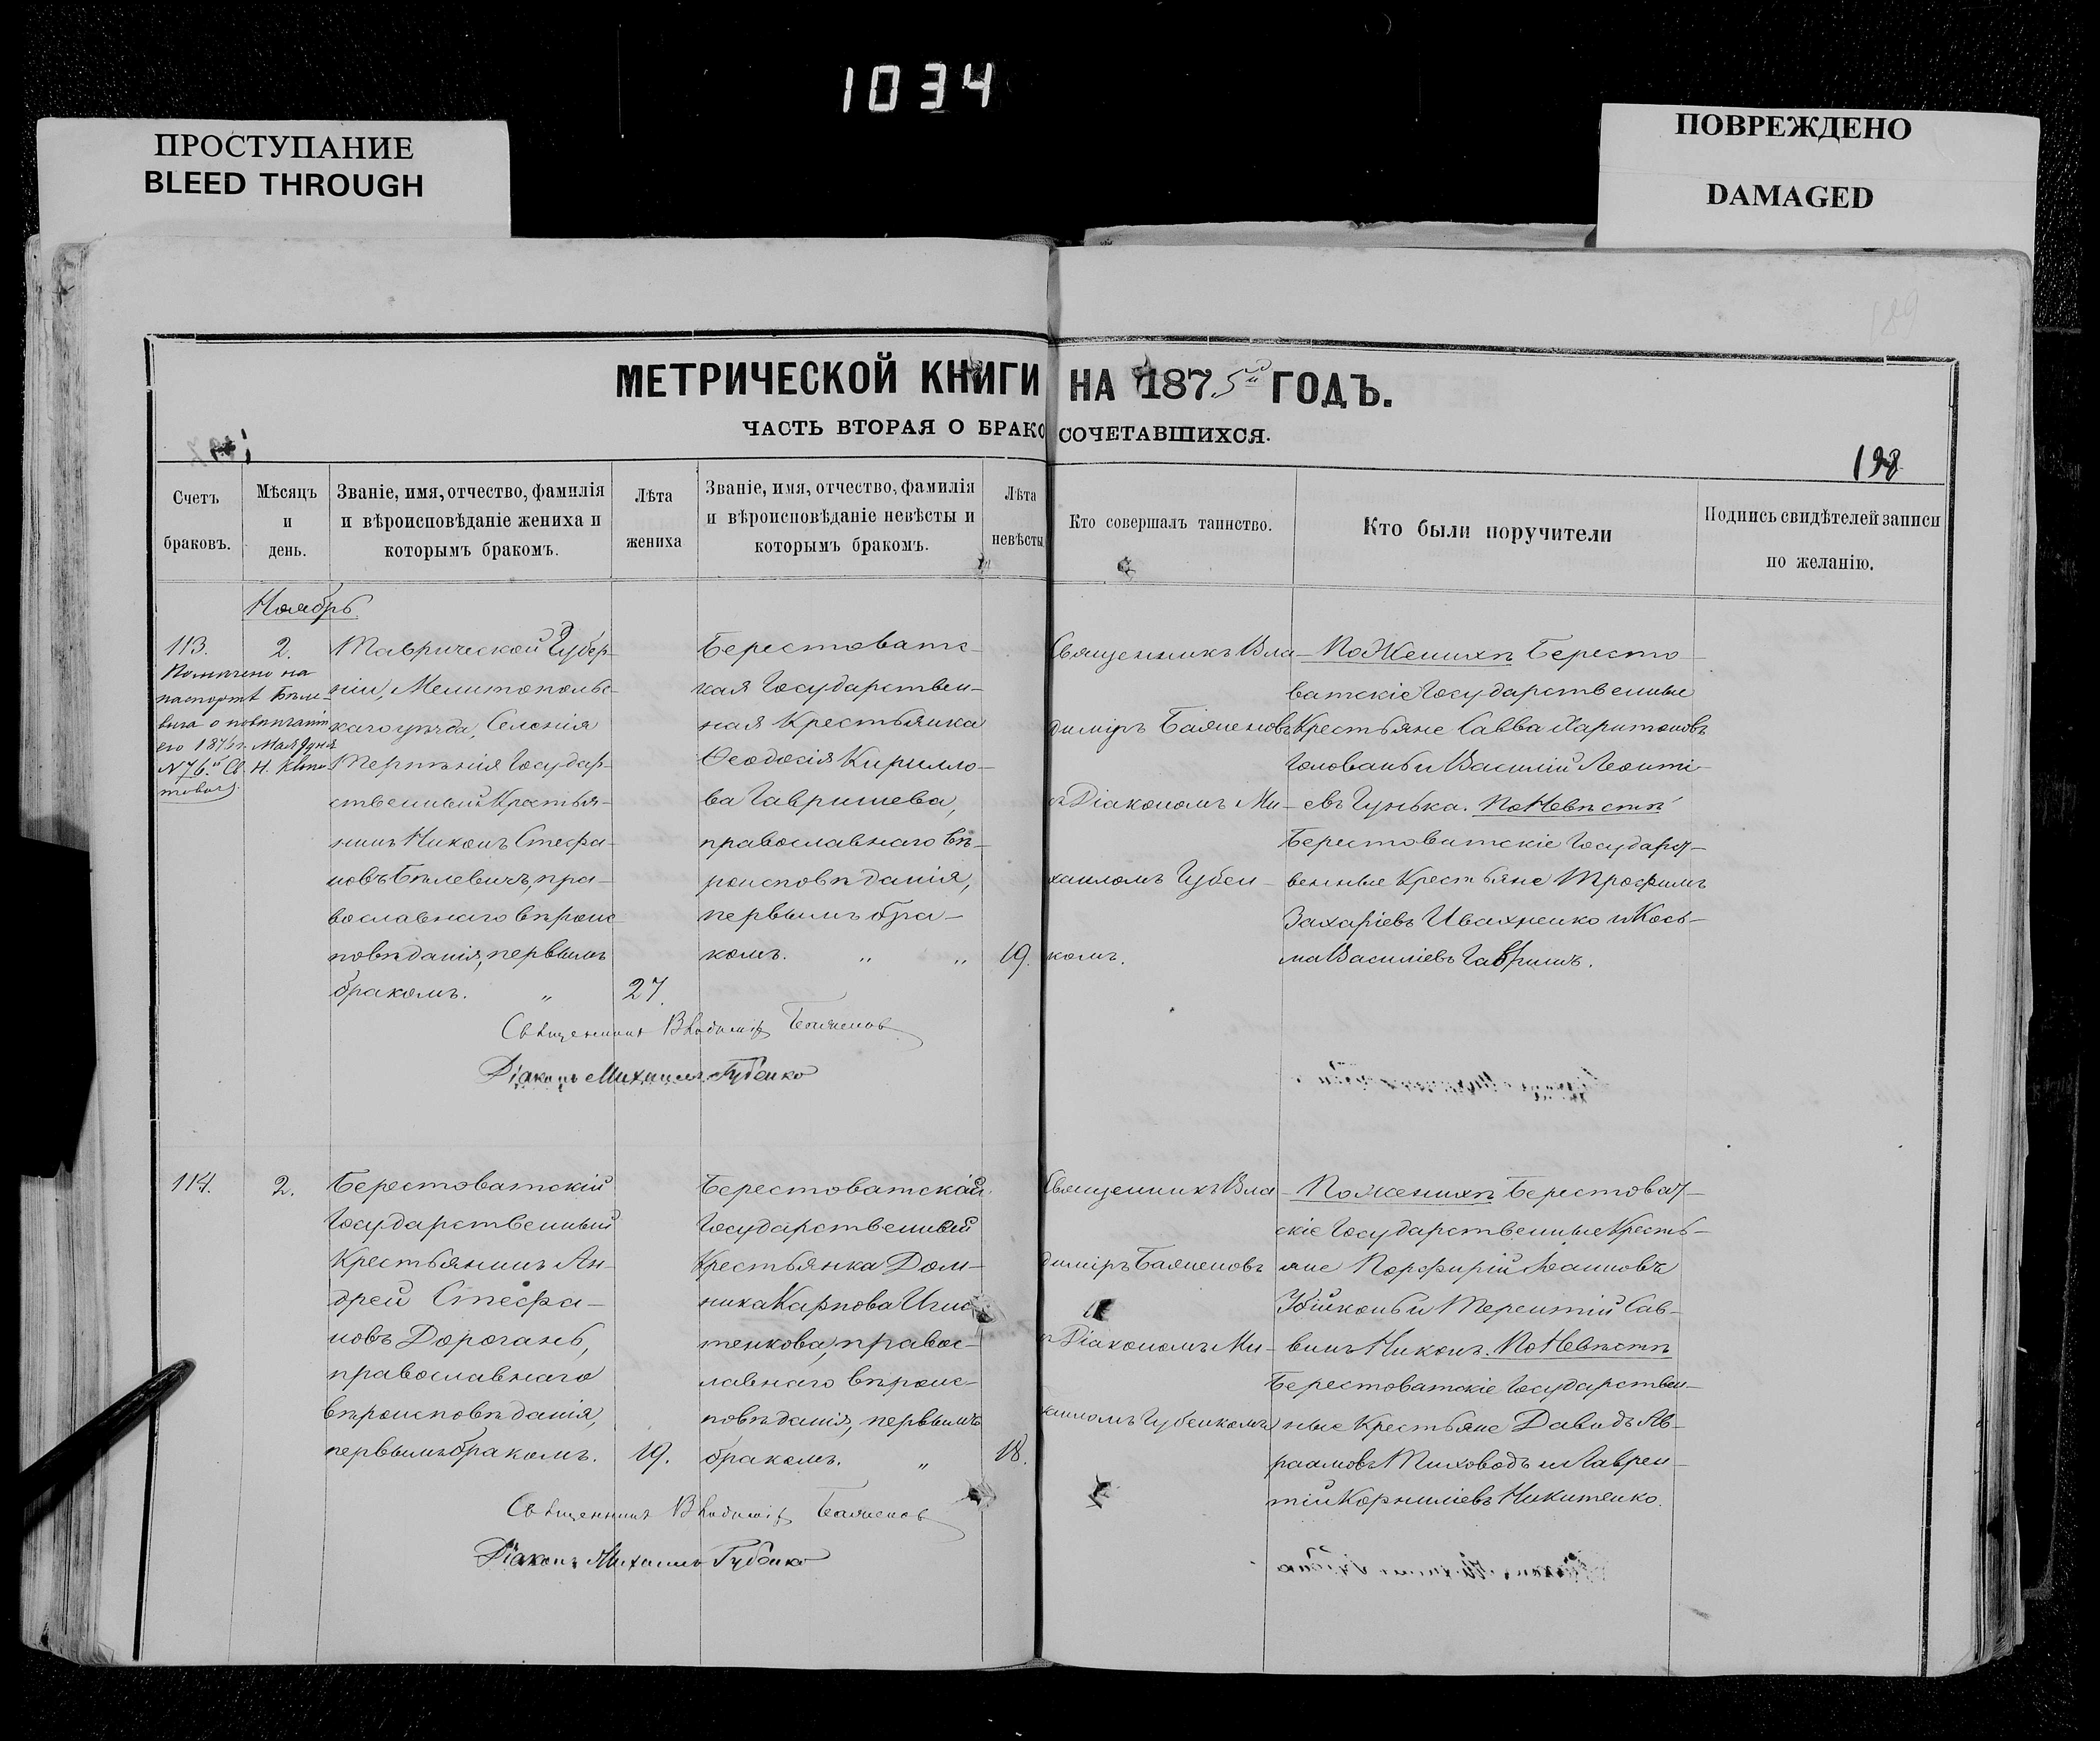 1034
ПРОСТУПАНИЕ
BLEED THROUGH
ПОВРЕЖДЕНО
DAMAGED
189
МЕТРИЧЕСКОЙ КНИГИ НА 1875й ГОДЪ.
ЧАСТЬ ВТОРАЯ О БРАКОСОЧЕТАВШИХСЯ.
198
Счетъ
браковъ.
Мѣсяцъ
и
день.
Званіе, имя, отчество, фамилія
и вѣроисповѣданіе жениха и
которымъ бракомъ.
Лѣта
жениха
Званіе, имя, отчество, фамилія
и вѣроисповѣданіе невѣсты и
которымъ бракомъ.
Лѣта
невѣсты
Кто совершалъ таинство.
Кто были поручители
Подпись свидѣтелей записи
по желанію.
Ноябрь
113.
Помѣчено на
паспортѣ Бѣле-
вича о повѣнчаніи
его 1875 г.
2.
Таврической Губер-
ніи, Мелитопольс-
каго уѣзда, Селенія
Терпѣнія Государ-
ственный Крестья-
нинъ Никонъ Стефа-
новъ Бѣлевичъ, пра-
вославнаго вѣроис-
повѣданія, первымъ
бракомъ. „
27.
Берестоватс-
кая Государствен-
ная Крестьянка
Ѳеодосія Кирилло-
ва Гавришева,
православнаго вѣ-
роисповѣданія,
первымъ бра-
комъ. „ „
19.
Священникъ Вла-
диміръ Баяненовъ
съ Діакономъ Ми-
хаиломъ Губен-
комъ.
По Женихѣ Бересто-
ватскіе Государственные
Крестьяне Савва Харитоновъ
Головань и Василій Леонті-
евъ Гунька. По Невѣстѣ
Берестоватскіе Государст-
венные Крестьяне Трофимъ
Захаріевъ Ивахненко и Кось-
ма Василіевъ Гавришъ.
Священникъ Владиміръ Баяненовъ
Діаконъ Михаилъ Губенко
114.
2.
Берестоватскій
Государственный
Крестьянинъ Ан-
дрей Стефа-
новъ Дорогань,
православнаго
вѣроисповѣданія,
первымъ бракомъ.
19.
Берестоватская
Государственный
Крестьянка Дом-
ника Карпова
тенкова, правос-
лавнаго вѣроис-
повѣданія, первымъ
бракомъ. „
18.
Священникъ Вла-
диміръ Баяненовъ
съ Діакономъ Ми-
хаиломъ Губенкомъ
По женихѣ Берестоват-
скіе Государственные Кресть-
яне Порфирій Іоанновъ
и Терентій Сав-
винъ Никонъ. По Невѣстѣ
Берестоватскіе Государствен-
ные Крестьяне Давидъ Ав-
раамовъ Тиховодъ и Лаврен-
тій Корниліевъ Никитенко.
Священникъ Владиміръ Баяненовъ
Діаконъ Михаилъ Губенко